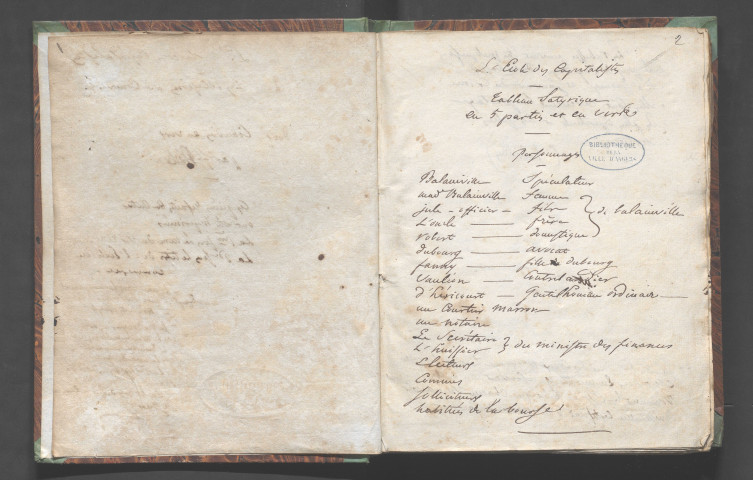 1
2
L'Ecole des Capitalistes
Tableau Satyrique
en 5 parties et en vers
BIBLIOTHÈQUE
DE LA
VILLE D'ANGERS
personnages
Balainville — Spéculateur
mad. Balainville Femme
jule - officier - fils
L'oncle — frère
de balainville
robert — domestique
dubourg — avocat
fanny — fille dubourg
Vaulien —
d'héricourt — Gentilhomme ordinaire
un Courtier marron
un notaire
Le Secrétaire
L'huissier
du ministre des finances
Electeurs
Commis
solliciteurs
habitués de la bourse